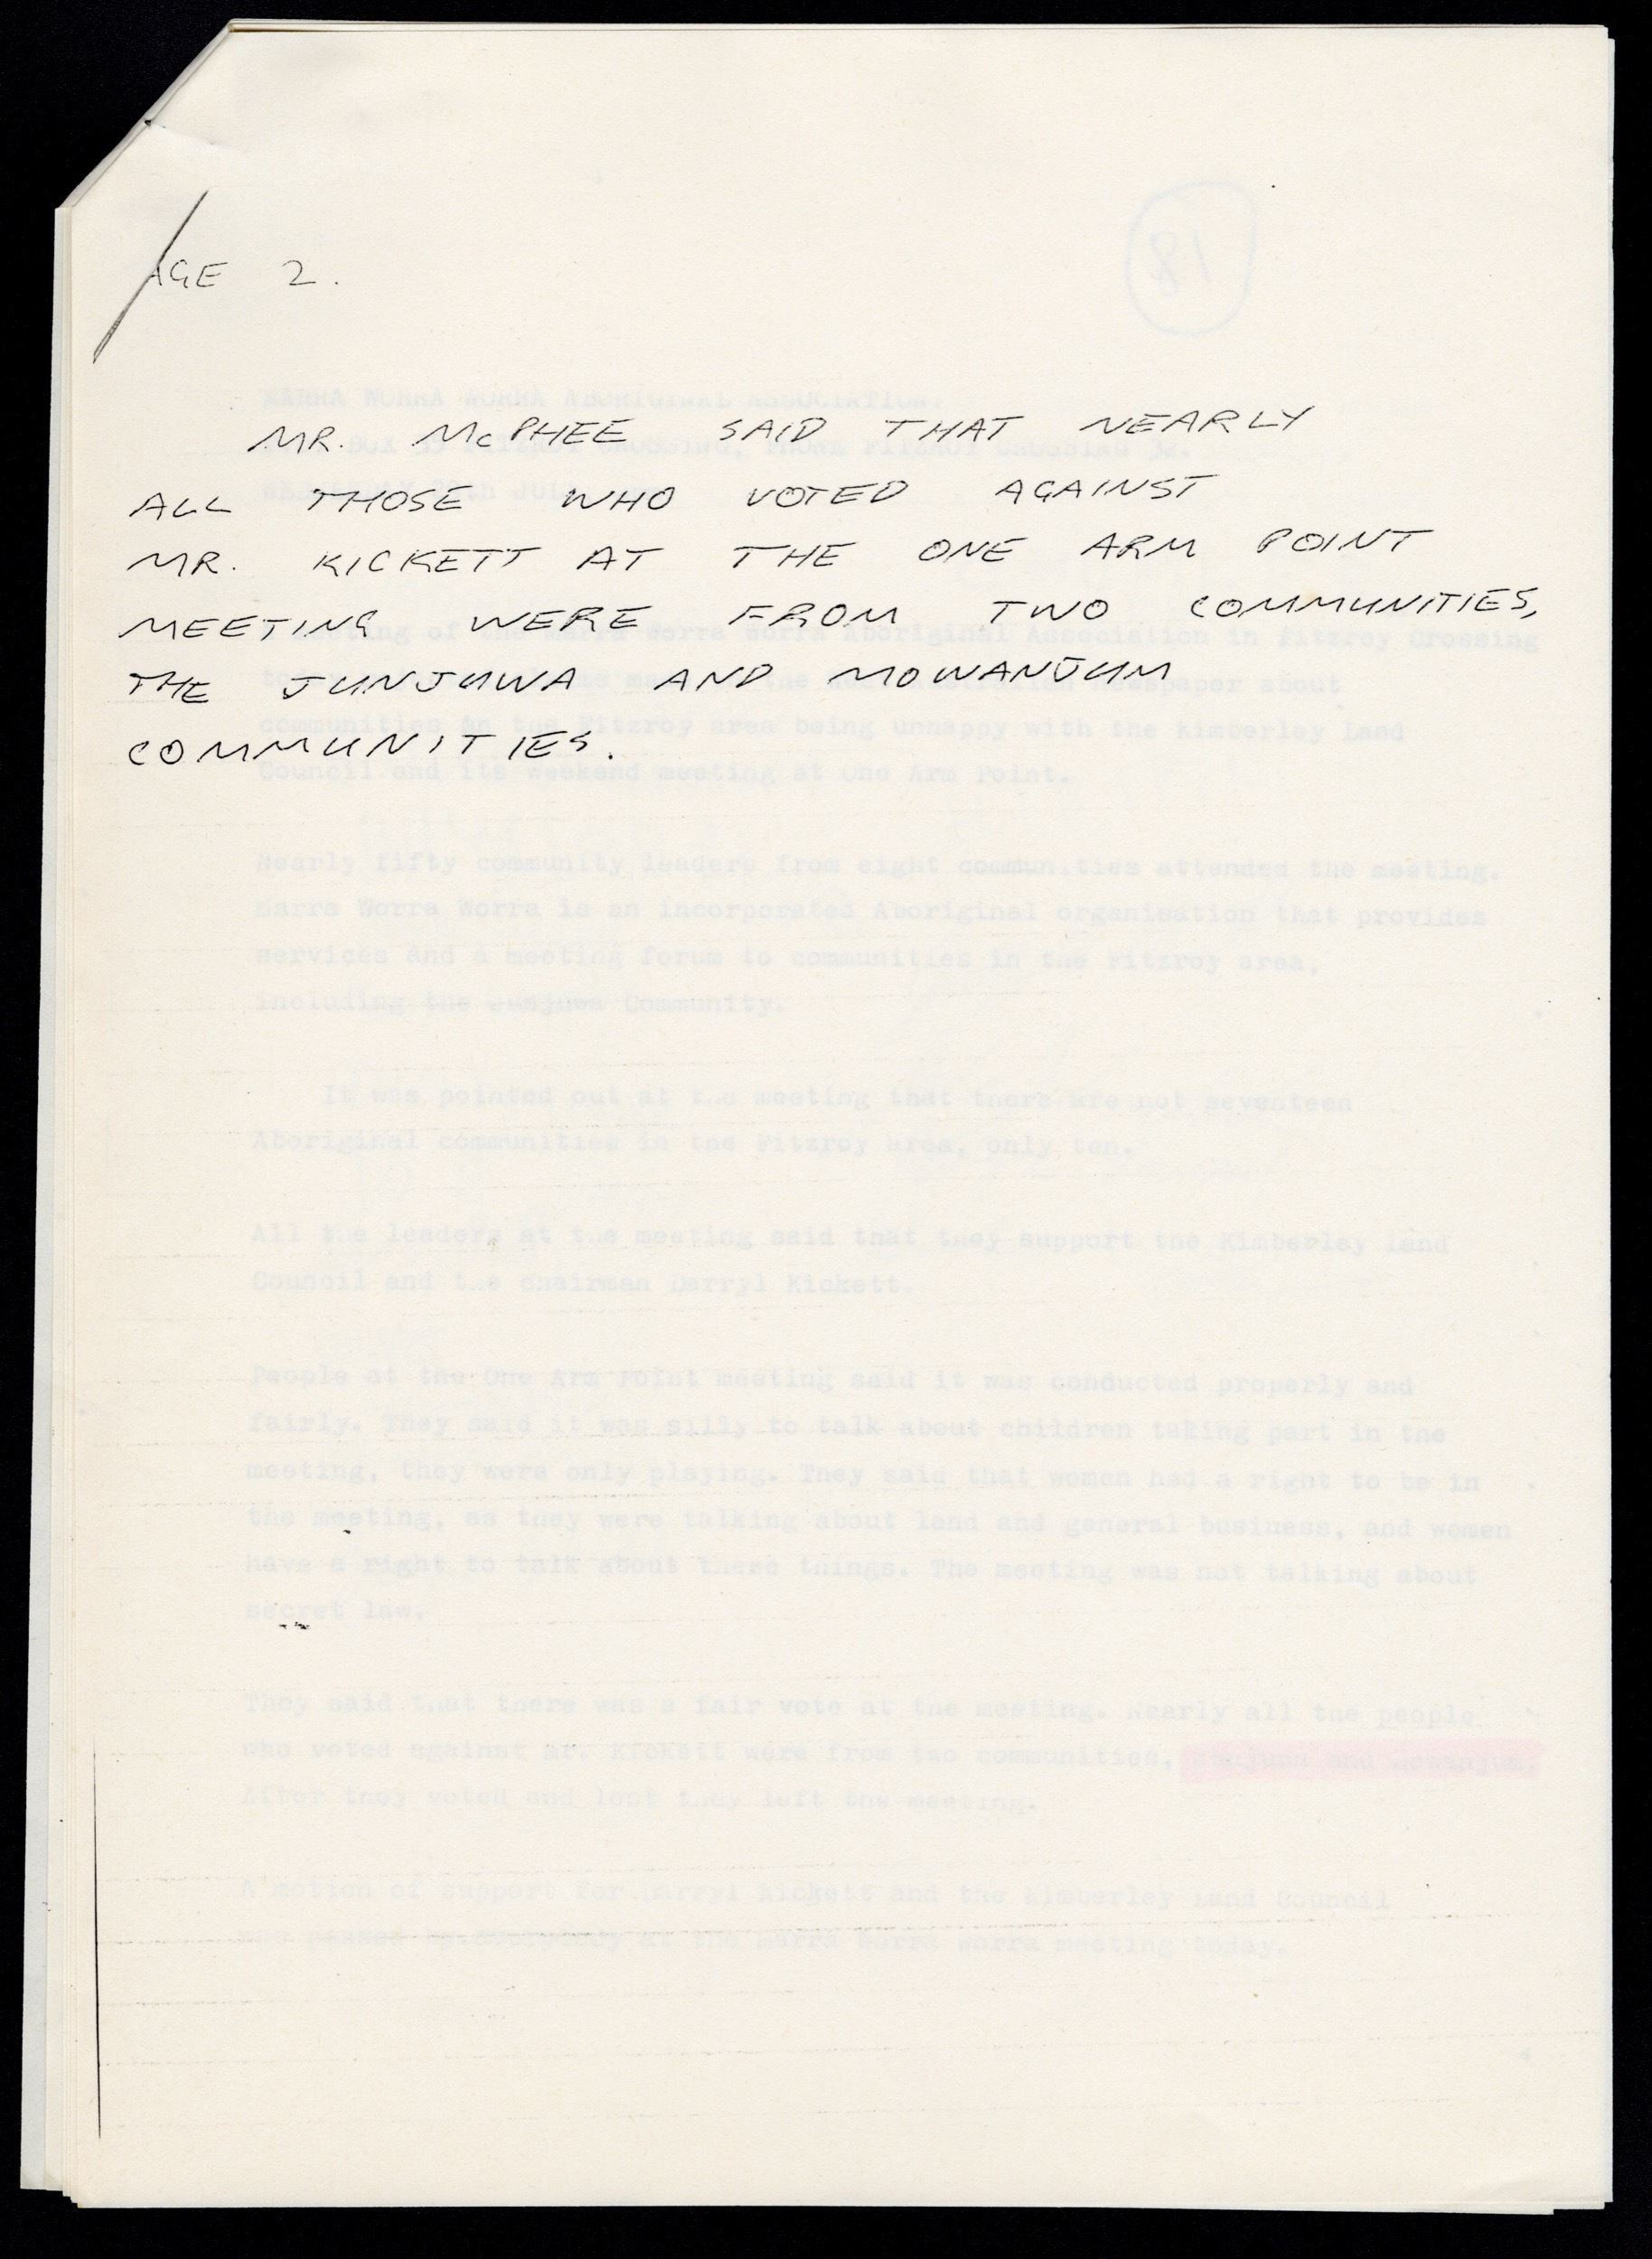 AGE 2.
MR. McPHEE SAID THAT NEARLY
ALL THOSE WHO VOTED AGAINST
MR. KICKETT AT THE ONE ARM POINT
MEETING WERE FROM TWO COMMUNITIES,
THE JUNJUWA AND MOWANJUM
COMMUNITIES.
81
MARRA WORRA WORRA ABORIGINAL ASSOCIATION.
BOX 35 FITZROY CROSSING, PHONE FITZROY CROSSING 32.
meeting of the Marra Worra Worra Aboriginal Association in Fitzroy Crossing
the West Australian Newspaper about
communities in the Fitzroy area being unhappy with the Kimberley Land
Council and its weekend meeting at One Arm Point.
Nearly fifty community leaders from eight communities attended the meeting.
Marra Worra Worra is an incorporated Aboriginal organisation that provides
services and a meeting forum to communities in the Fitzroy area,
including the Junjuwa Community.
It was pointed out at the meeting that there are not seventeen
Aboriginal communities in the Fitzroy area, only ten.
All the leaders at the meeting said that they support the Kimberley Land
Council and the chairman Darryl Kickett.
People at the One Arm Point meeting said it was conducted properly and
fairly. They said it was silly to talk about children taking part in the
meeting, they were only playing. They said that women had a right to be in
the meeting, as they were talking about land and general business, and women
have a right to talk about these things. The meeting was not talking about
secret law.
They said that there was a fair vote at the meeting. Nearly all the people
who voted against Mr. Kickett were from two communities, Junjuwa and Mowanjum.
After they voted and lost they left the meeting.
A motion of support for Darryl Kickett and the Kimberley Land Council
was passed by everybody at the Marra Worra Worra meeting today.